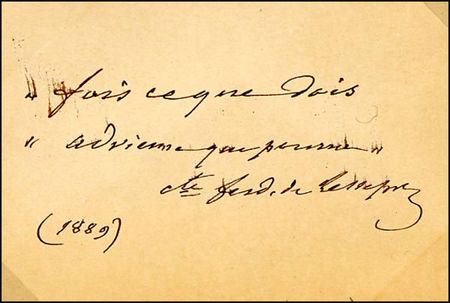 " fais ce que dois
" advienne que pourra "
Cte ferd. de Lesseps
(1889)